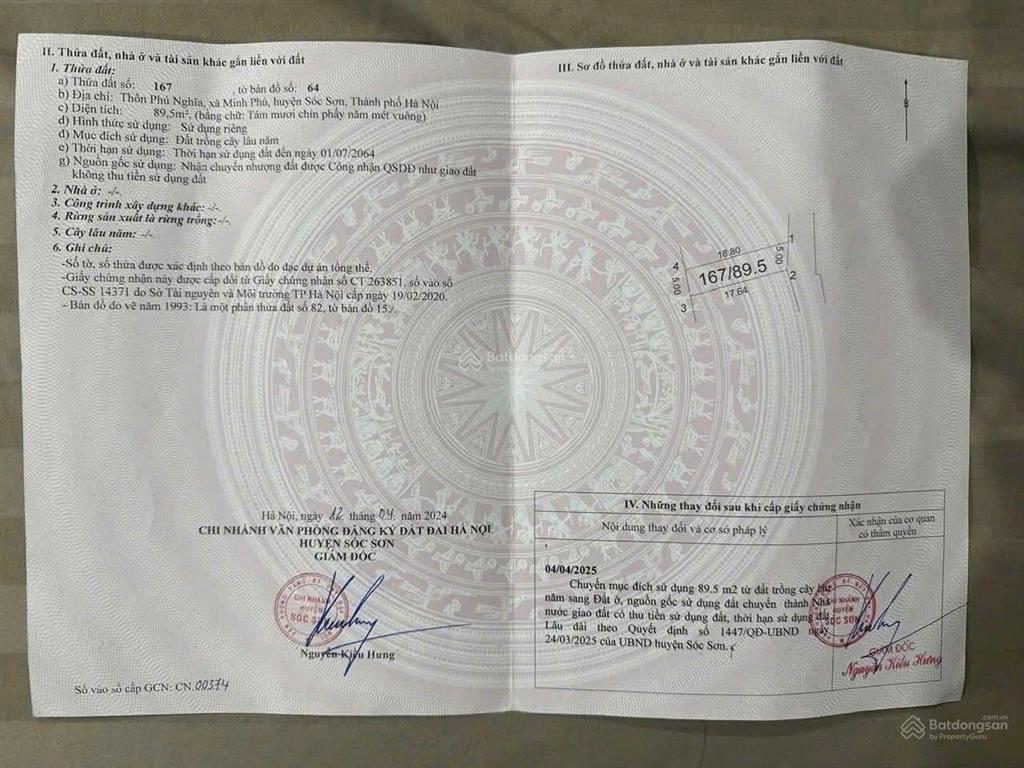 II. Thửa đất, nhà ở và tài sản khác gắn liền với đất
1. Thửa đất:
a) Thửa đất số: 167 , tờ bản đồ số: 64
b) Địa chỉ: Thôn Phú Nghĩa, xã Minh Phú, huyện Sóc Sơn, Thành phố Hà Nội
c) Diện tích: 89,5m², (bằng chữ: Tám mươi chín phẩy năm mét vuông)
d) Hình thức sử dụng: Sử dụng riêng
đ) Mục đích sử dụng: Đất trồng cây lâu năm
e) Thời hạn sử dụng: Thời hạn sử dụng đất đến ngày 01/07/2064
g) Nguồn gốc sử dụng: Nhận chuyển nhượng đất được Công nhận QSDĐ như giao đất
không thu tiền sử dụng đất
2. Nhà ở: -/-.
3. Công trình xây dựng khác: -/-.
4. Rừng sản xuất là rừng trồng:-/-.
5. Cây lâu năm: -/-.
6. Ghi chú:
-Số tờ, số thửa được xác định theo bản đồ đo đạc dự án tổng thể.
-Giấy chứng nhận này được cấp đổi từ Giấy chứng nhận số CT 263851, số vào sổ
CS-SS 14371 do Sở Tài nguyên và Môi trường TP Hà Nội cấp ngày 19/02/2020.
- Bản đồ đo vẽ năm 1993: Là một phần thửa đất số 82, tờ bản đồ 15./.
Hà Nội, ngày 12 tháng 04 năm 2024
CHI NHÁNH VĂN PHÒNG ĐĂNG KÝ ĐẤT ĐAI HÀ NỘI
HUYỆN SÓC SƠN
GIÁM ĐỐC
CHI NHÁNH
HUYỆN
SÓC SƠN
Nguyễn Kiều Hưng
Số vào sổ cấp GCN: CN.00374
III. Sơ đồ thửa đất, nhà ở và tài sản khác gắn liền với đất
B
4
16.80
1
5.00
167/89.5
5.00
2
3
17.64
IV. Những thay đổi sau khi cấp giấy chứng nhận
Nội dung thay đổi và cơ sở pháp lý
Xác nhận của cơ quan
có thẩm quyền
04/04/2025
Chuyển mục đích sử dụng 89.5 m2 từ đất trồng cây lâu
năm sang Đất ở, nguồn gốc sử dụng đất chuyển thành Nhà
nước giao đất có thu tiền sử dụng đất, thời hạn sử dụng đất
Lâu dài theo Quyết định số 1447/QĐ-UBND ngày
24/03/2025 của UBND huyện Sóc Sơn.
CHI NHÁNH
HUYỆN
SÓC SƠN
GIÁM ĐỐC
Nguyễn Kiều Hưng
Batdongsan
by PropertyGuru
Batdongsan.com.vn
by PropertyGuru